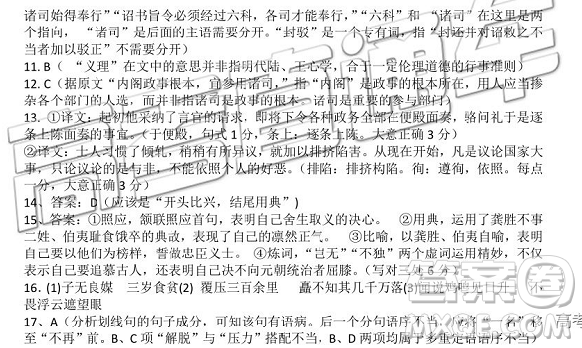 诸司始得奉行”“诏书旨令必须经过六科，各司才能奉行”，“六科”和 “诸司”在这里是两
个指向， “诸司”是后面的主语需要分开。“封驳”是一个专有词，指“封还并对诏敕之不
当者加以驳正”不需要分开）
11. B（ “义理”在文中的意思并非指明代陆、王心学，合于一定伦理道德的行事准则）
12. C（据原文“内阁政事根本，宜参用诸司，”指“内阁”是政事的根本所在，用人应当掺
杂各个部门的人选，而并非指诸司是政事的根本。诸司是重要的参与部门）
13. ①译文：起初他采纳了言官的请求，即将下令各种政务全部在便殿面奏，骆问礼于是逐
条上陈面奏的事宜。（于便殿，句式 1 分，条上：逐条上陈。大意正确 3 分）
②译文：士人习惯了倾轧，稍稍有所异议，就加以排挤陷害。从现在开始，凡是议论国家大
事，只论议论的是与非，不能依照个人的好恶。（排陷：排挤构陷。徇：遵徇，依照。每点
一分，大意正确 3 分）
14、答案：D（应该是“开头比兴，结尾用典”）
15、答案：①照应，颔联照应首句，表明了自己舍生取义的决心。 ②用典，运用了龚胜不事
二姓、伯夷耻食饿卒的典故，表现了自己的凛然正气。 ③比喻，以龚胜、伯夷自喻，表明
自己要以他们为榜样，誓做忠臣义士。 ④炼词，“岂无”“不独”两个虚词运用精妙，不仅
表示自己要追慕古人，还表明自己决不向元朝统治者屈膝。（写对三处 6 分）
16. (1)子无良媒 三岁食贫(2) 覆压三百余里 矗不知其几千万落(3)
畏浮云遮望眼
17、A（分析划线句的句子成分，可知该句有语病。后一个分句语序不当，“将
至“不再”前。B、C 项“解脱”与“压力”搭配不当，B、D 两项均属于多重定语语序不当）
高考直通车
答案圈